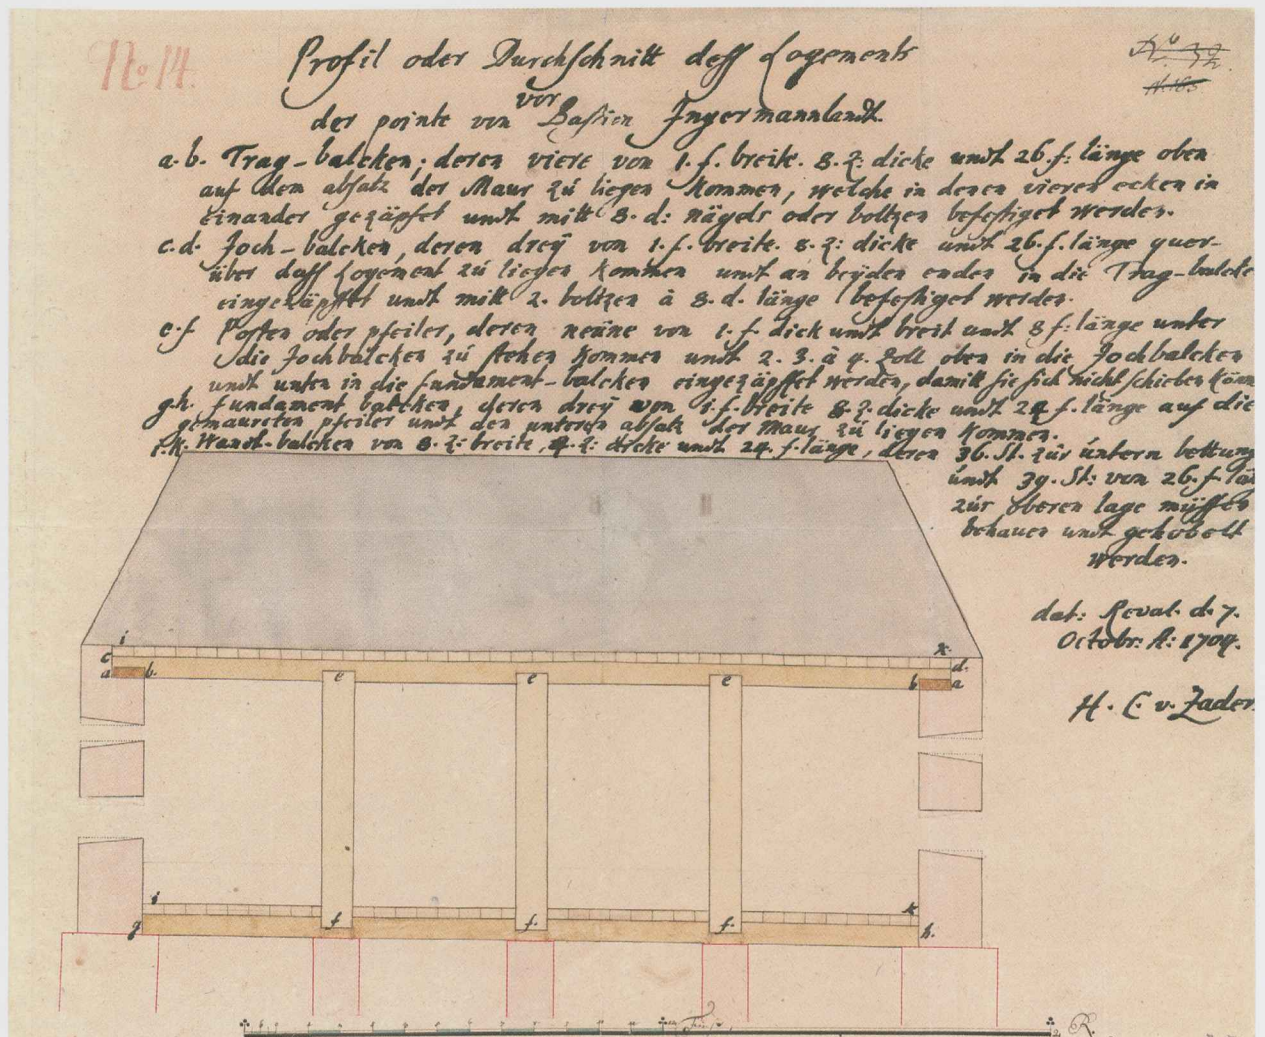 No 14.
No 32.
Profil oder Durchschnitt dess Logements
vor
der pointe von Bastion Ingermannlandt.
a. b. Trag-balcken; deren viere von 1. f. breite. 8. z: dicke undt 26. f: länge oben
auf dem absatz der Maur zú liegen kommen, welche in denen vieren ecken in
einander gezäpfet undt mitt 8. d: nägels oder boltzen befestiget werden.
c. d. Joch-balcken, deren dreÿ von 1. f. breite. 8. z: dicke undt 26. f. länge quer-
über dass Logement zú liegen kommen undt an beÿden enden in die Trag-balcke
eingezäpffet undt mitt 2. boltzen à 8. d. länge befestiget werden.
e. f Posten oder pfeiler, deren neüne von 1. f. dick undt breit undt 8 f: länge unter
die Jochbalcken zú stehen kommen undt 2. 3. à 4. Zoll oben in die Jochbalcken
undt unten in die fundament-balcken eingezäpffet werden, damitt sie sich nicht schieben könn
g. h. fundament balcken, deren dreÿ von 1. f. breite 8. z. dicke undt 24 f. länge auf die
gemaureten pfeiler undt den unteren absatz der Maur zú liegen kommen.
i. k. Wandt-balcken von 8. z: breite, 4. z: dicke undt 24. f. länge, deren 36. St. zúr úntern bettung
úndt 39. St: von 26. f. län
zúr oberen lage müssen
behauen undt gehobelt
werden.
dat: Reval. d. 7.
Octobr: A: 1704.
H. C. v. Zader
i k.
c d.
a b. b a
e e e
i k
f f. f.
g h.
R.